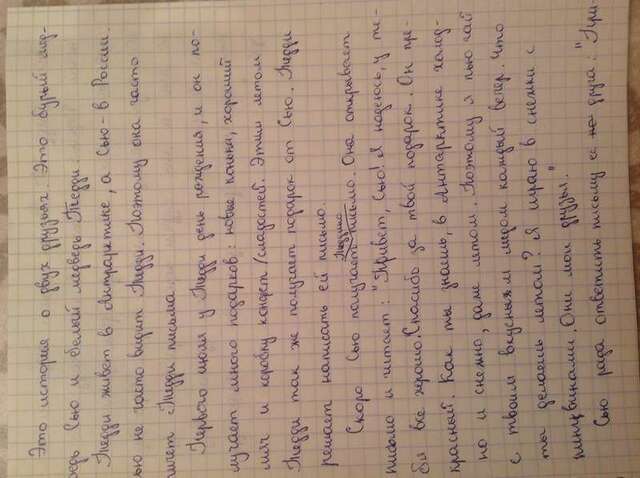 Это история о двух друзьях. Это бурый мед-
ведь Сью и белый медведь Тедди
Тедди живет в Антрарктике, а Сью - в России.
Сью не часто видит Тедди. Поэтому она часто
пишет Тедди письма.
Первого июля у Тедди день рождения, и он по-
лучает много подарков: новые коньки, хороший
мяч и коробку конфет/сладостей. Этим летом
Тедди так же получает подарок от Сью. Тедди
решает написать ей письмо.
Скоро Сью получает Теддино письмо. Она открывает
письмо и читает: "Привет, Сью! Я надеюсь, у те-
бя все хорошо. Спасибо за твой подарок. Он пре-
красный. Как ты знаешь, в Антарктике холод-
но и снежно, даже летом. Поэтому я пью чай
с твоим вкусным медом каждый вечер. Что
ты делаешь летом? Я играю в снежки с
пингвинами. Они мои друзья."
Сью рада ответить письму ее друга: "При-